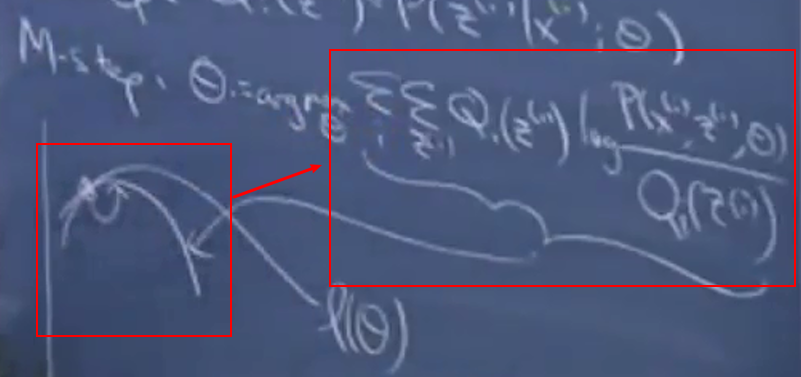 Q_i(z^{(i)}) = P(z^{(i)}|x^{(i)}; θ)
M-step: θ := argmax_θ Σ_i Σ_{z^{(i)}} Q_i(z^{(i)}) log P(x^{(i)}, z^{(i)}; θ) / Q_i(z^{(i)})
l(θ)